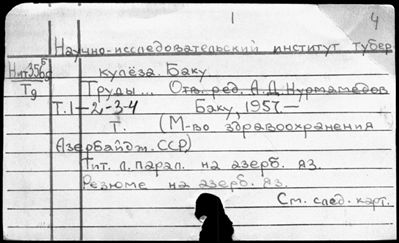 1 4
Научно-исследовательский институт тубер
кулёза. Баку.
Труды... Отв. ред. А.Д. Нурмамедов
Тд
Т.1-2-3-4 Баку, 1957.—
Т. (М-во здравоохранения
Азербайдж. ССР)
Тит. л. парал. на азерб. яз.
Резюме на азерб. яз.
См. след. карт.